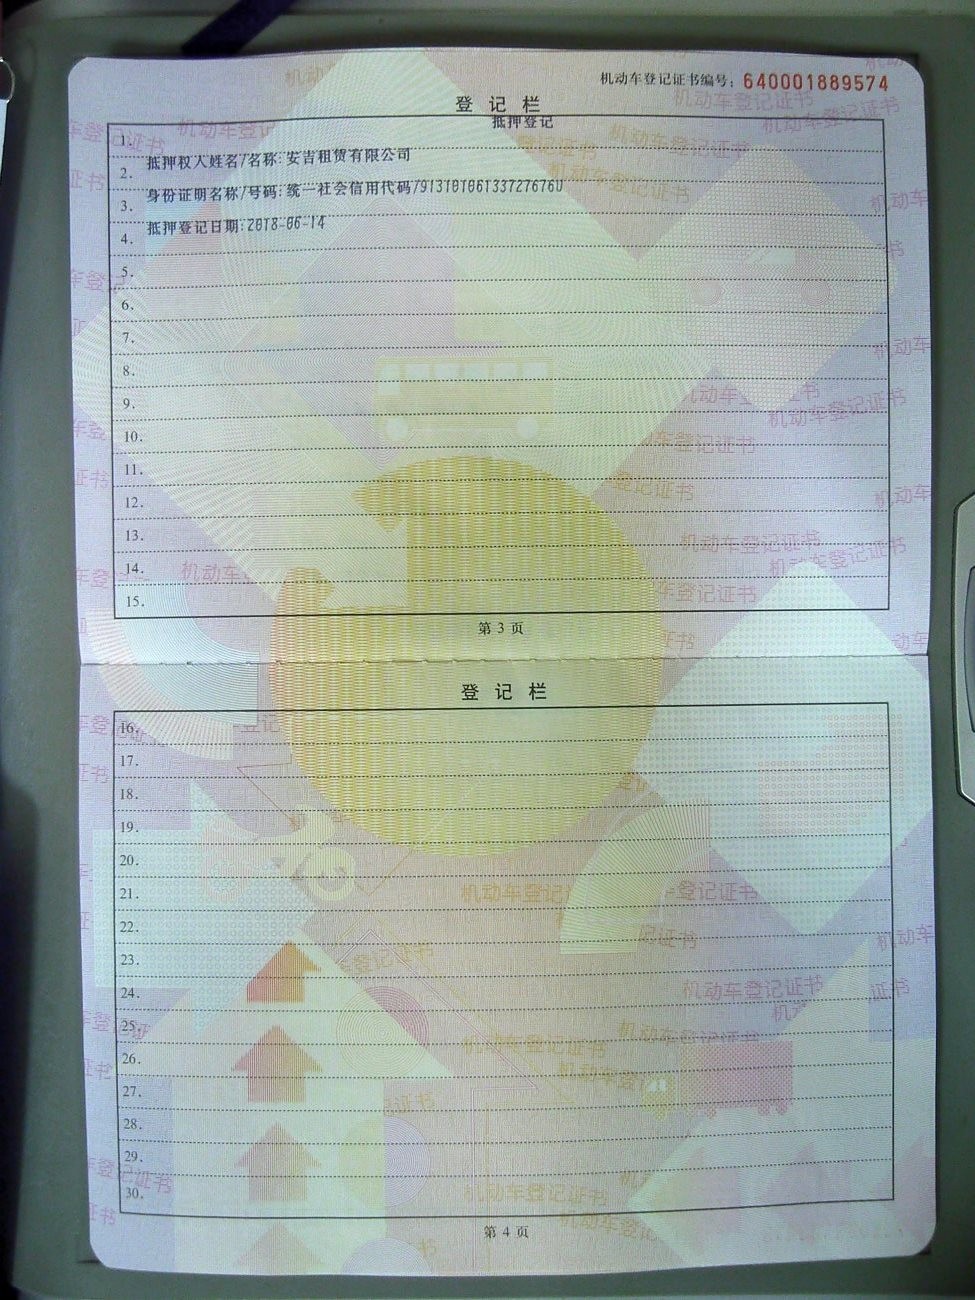 机动车登记证书编号：640001889574
登 记 栏
抵押登记
1.
抵押权人姓名/名称:安吉租赁有限公司
2.
身份证明名称/号码:统一社会信用代码/91310106133727676U
3.
抵押登记日期:2018-06-14
4.
5.
6.
7.
8.
9.
10.
11.
12.
13.
14.
15.
第 3 页
登 记 栏
16.
17.
18.
19.
20.
21.
22.
23.
24.
25.
26.
27.
28.
29.
30.
第 4 页